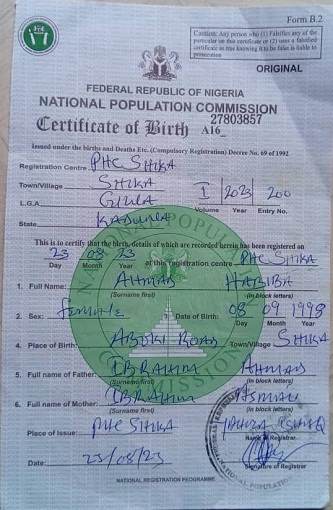 Form B.2
Caution: Any person who (1) Falsifies any of the
particular on this certificate or (2) uses a falsified
certificate as true knowing it to be false is liable to
prosecution
ORIGINAL
FEDERAL REPUBLIC OF NIGERIA
NATIONAL POPULATION COMMISSION
Certificate of Birth A16_ 27803857
Issued under the births and Deaths Etc. (Compulsory Registration) Decree No. 69 of 1992
Registration Centre PHC SHIKA
Town/Village SHIKA I 2023 200
L.G.A. GIWA Volume Year Entry No.
State KADUNA
This is to certify that the birth, details of which are recorded herein has been registered on
23 08 23 at this registration centre PHC SHIKA
Day Month Year
1. Full Name: AHMAD HABIBA
(Surname first) (in block letters)
2. Sex: female 3. Date of Birth: 08 09 1998
Day Month Year
4. Place of Birth: ROAD Town/Village SHIKA
5. Full name of Father: IBRAHIM AHMAD
(Surname first) (in block letters)
6. Full name of Mother: IBRAHIM
(Surname first) (in block letters)
Place of Issue: PHC SHIKA
Name of Registrar
Date: 23/08/23
Signature of Registrar
NATIONAL REGISTRATION PROGRAMME
NATIONAL POPULATION
COMMISSION